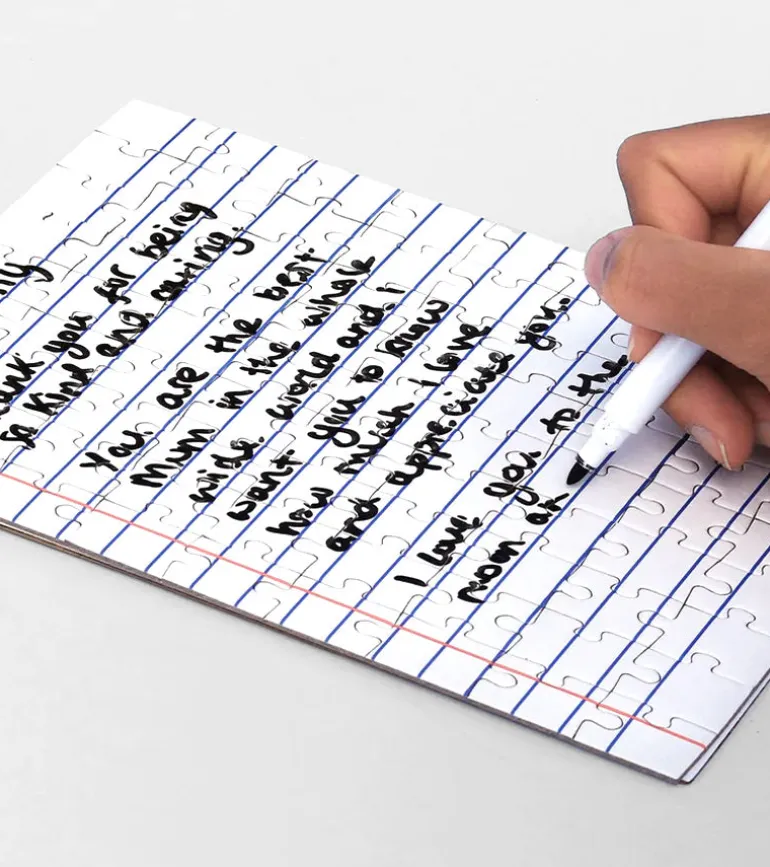 you for being
so kind and caring.
You are the best
mum in the whole
wide world and i
want you to know
how much i love
and appreciate you.
I love you to the
moon an